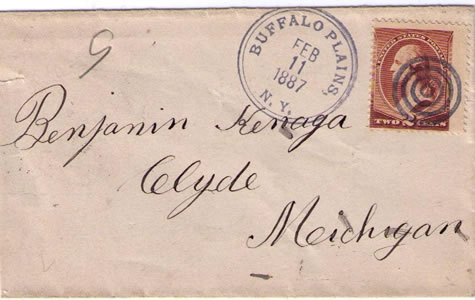 BUFFALO PLAINS,
FEB
11
1887
N.Y.
UNITED STATES POSTAGE
TWO CENTS
Benjamin Kenaga
Clyde
Michigan